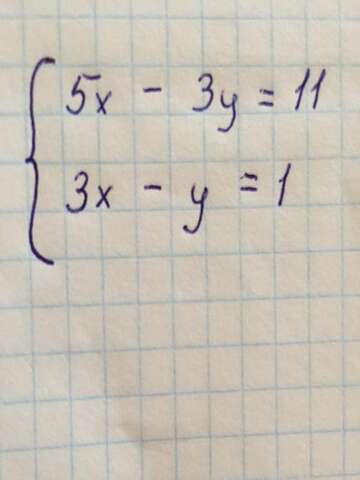 5x - 3y = 11
3x - y = 1